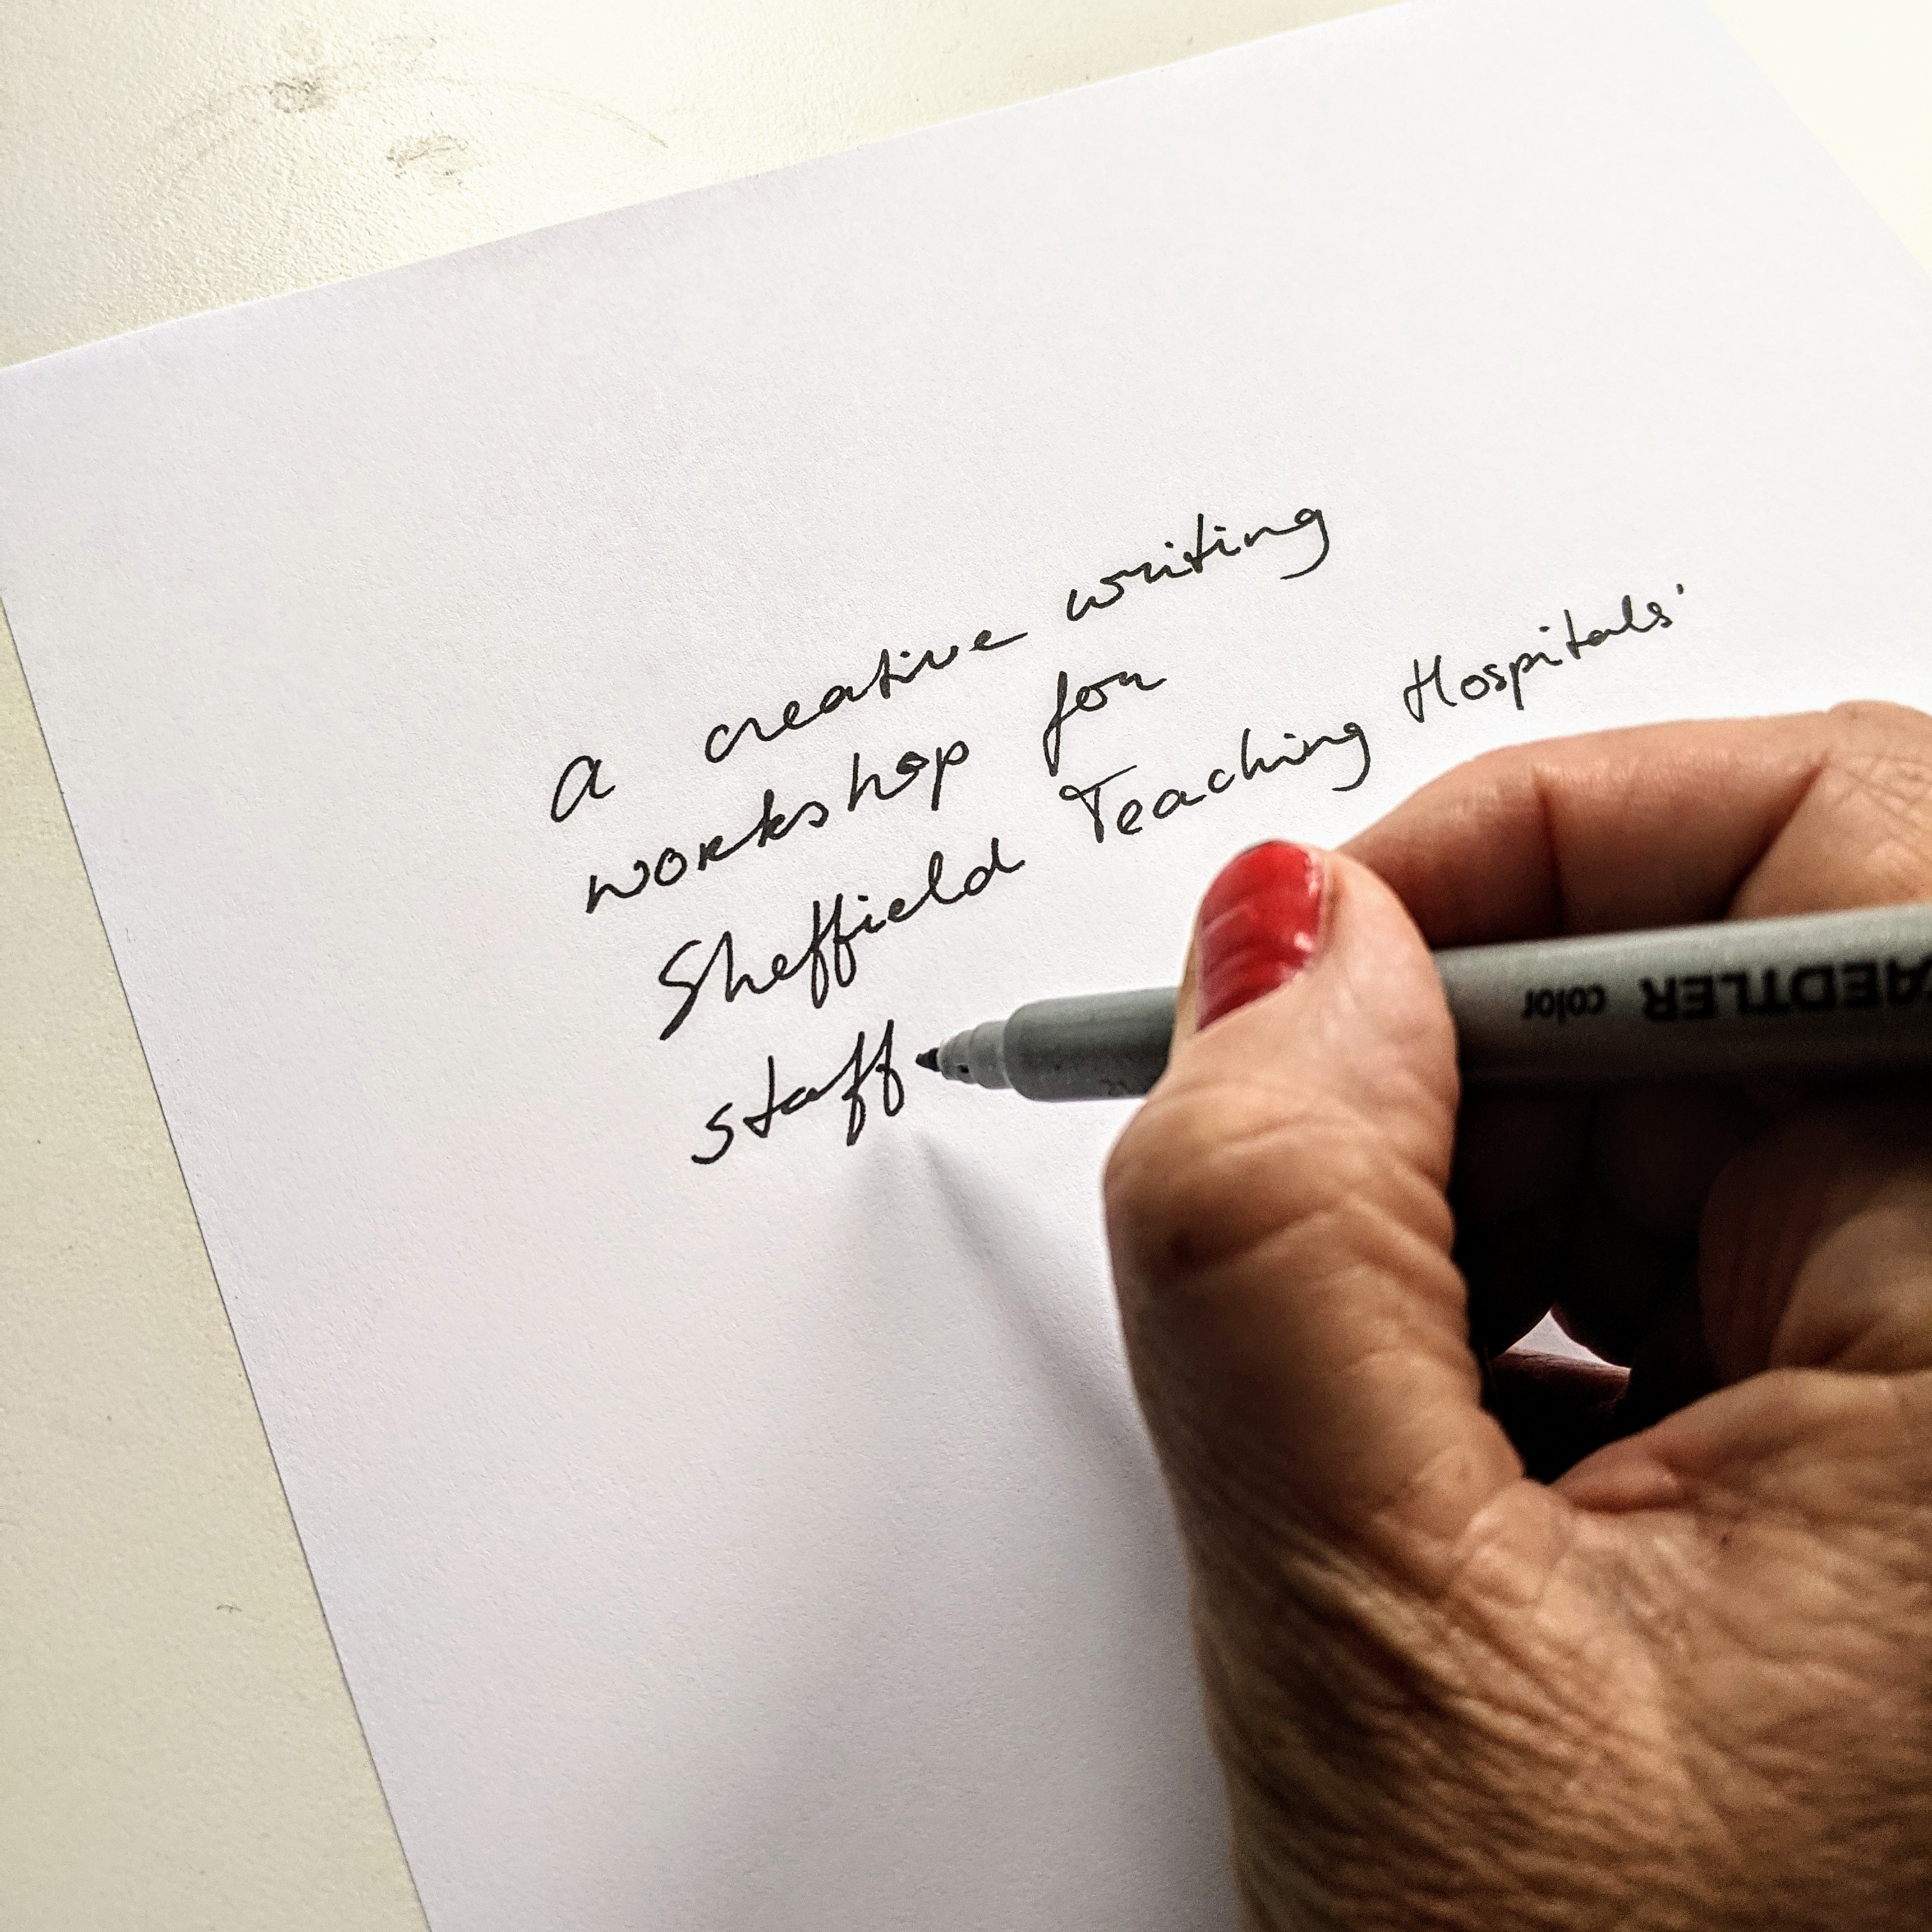 a creative writing
workshop for
Sheffield Teaching Hospitals'
staff
AEDTLER color